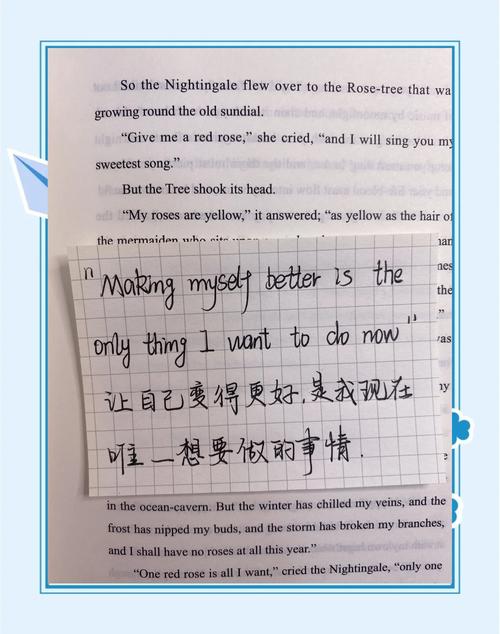 So the Nightingale flew over to the Rose-tree that wa
growing round the old sundial.
“Give me a red rose,” she cried, “and I will sing you my
sweetest song.”
But the Tree shook its head.
“My roses are yellow,” it answered; “as yellow as the hair of
the mermaiden who sits
"Making myself better is the
only thing I want to do now"
让自己变得更好,是我现在
唯一想要做的事情.
in the ocean-cavern. But the winter has chilled my veins, and the
frost has nipped my buds, and the storm has broken my branches,
and I shall have no roses at all this year.”
“One red rose is all I want,” cried the Nightingale, “only one